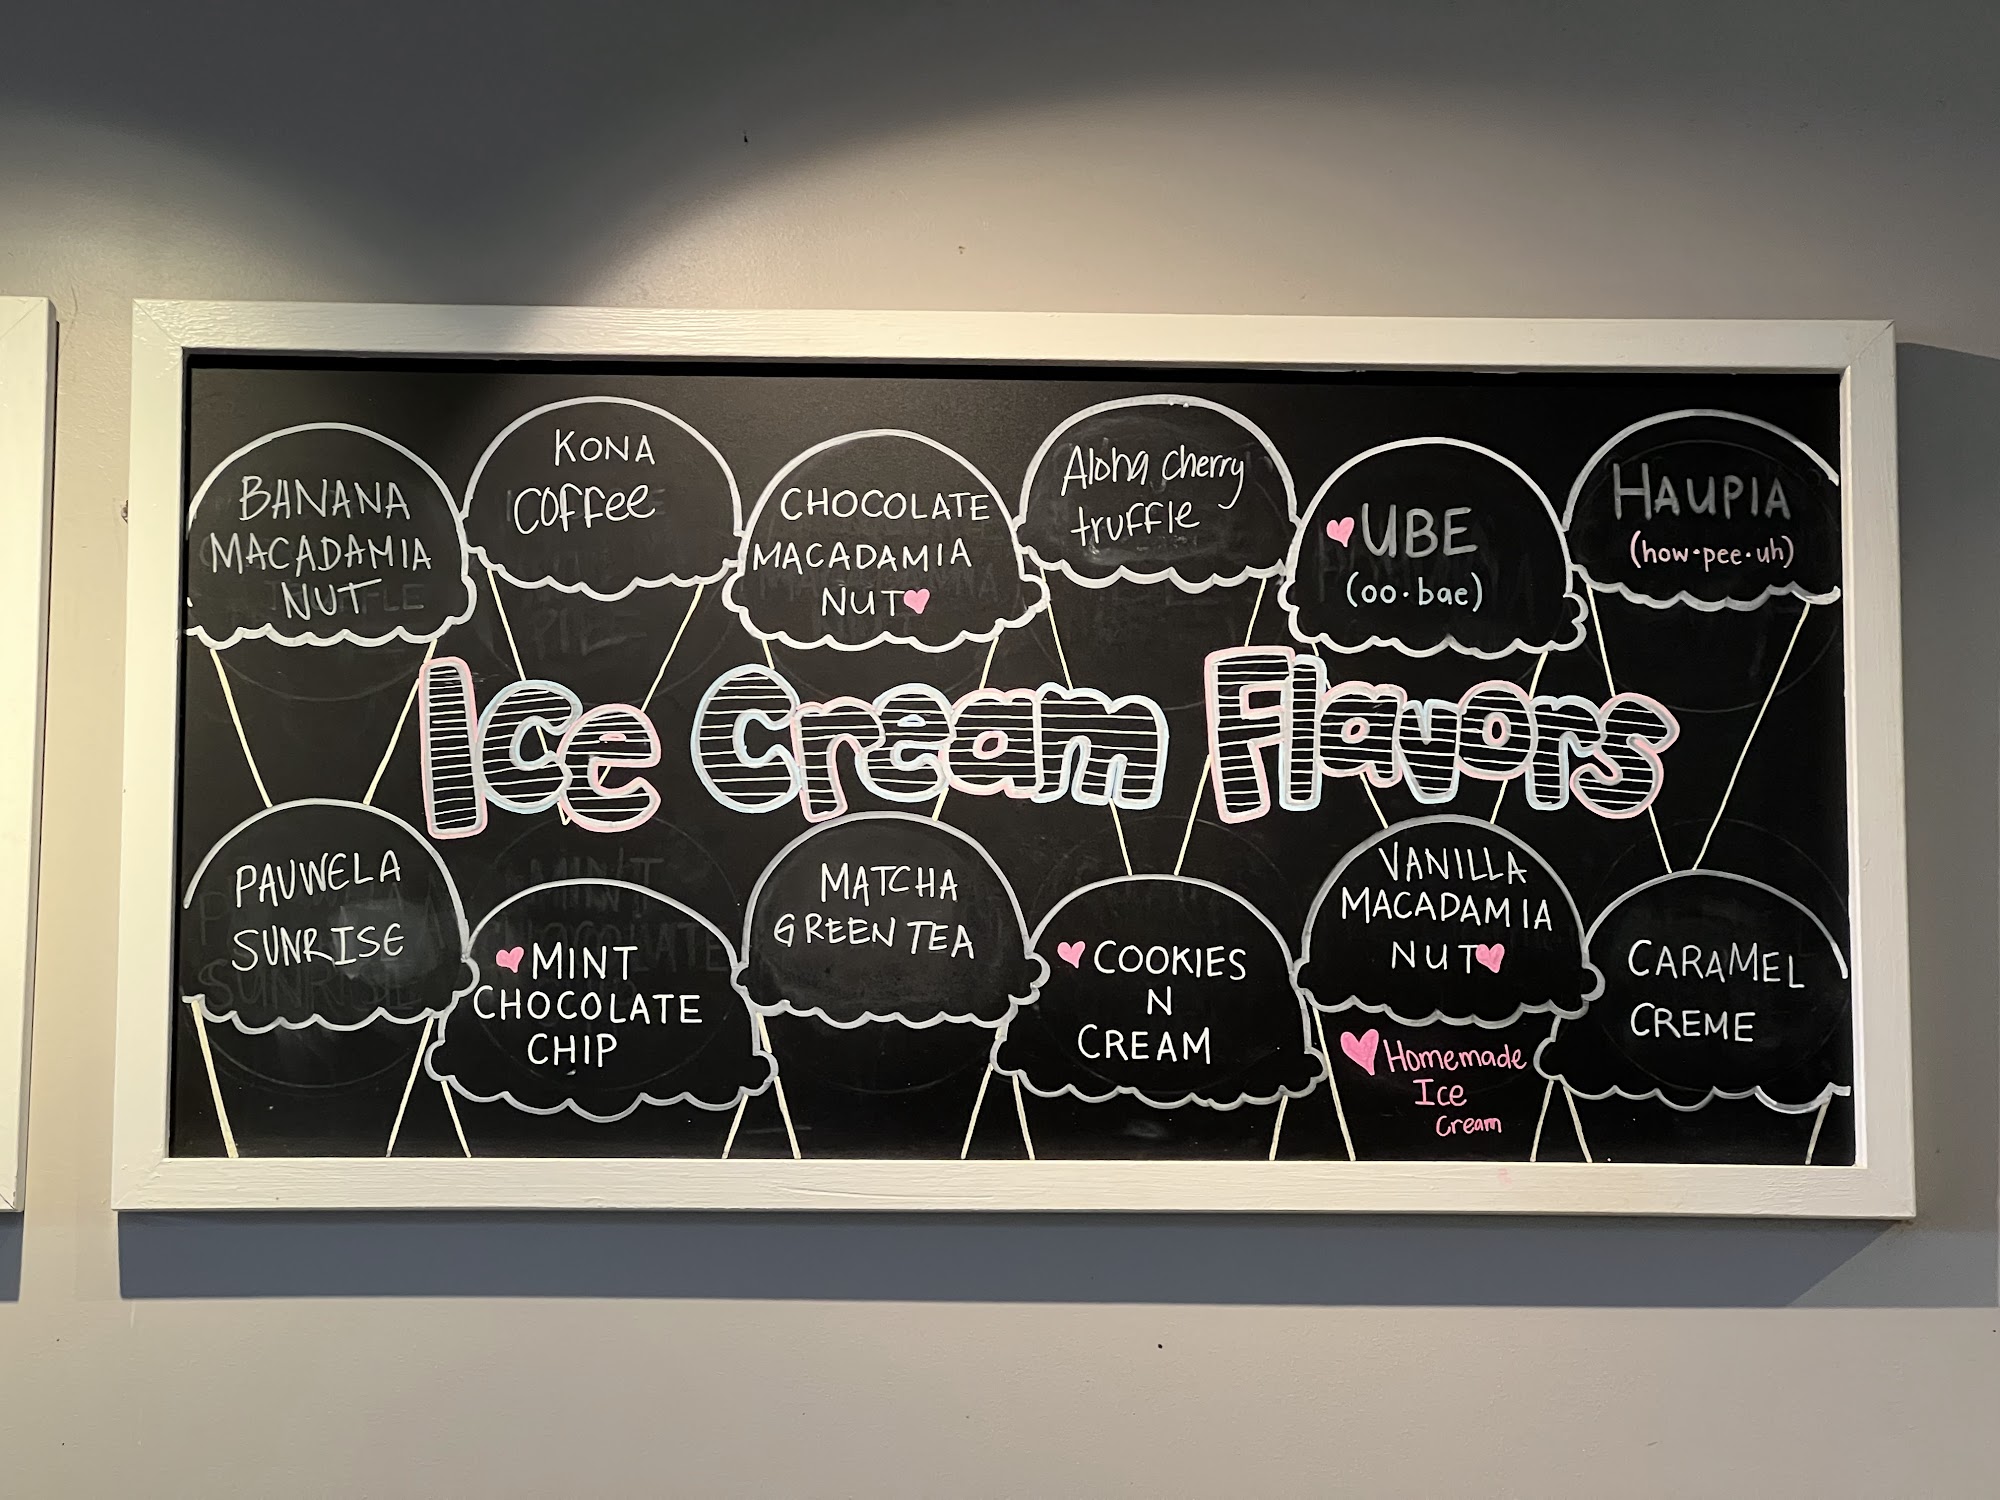 BANANA
MACADAMIA
NUT
KONA
COFFEE
CHOCOLATE
MACADAMIA
NUT
Aloha Cherry
truffle
UBE
(oo•bae)
HAUPIA
(how•pee•uh)
Ice Cream Flavors
PAUWELA
SUNRISE
MINT
CHOCOLATE
CHIP
MATCHA
GREEN TEA
COOKIES
N
CREAM
VANILLA
MACADAMIA
NUT
CARAMEL
CREME
Homemade
Ice
Cream